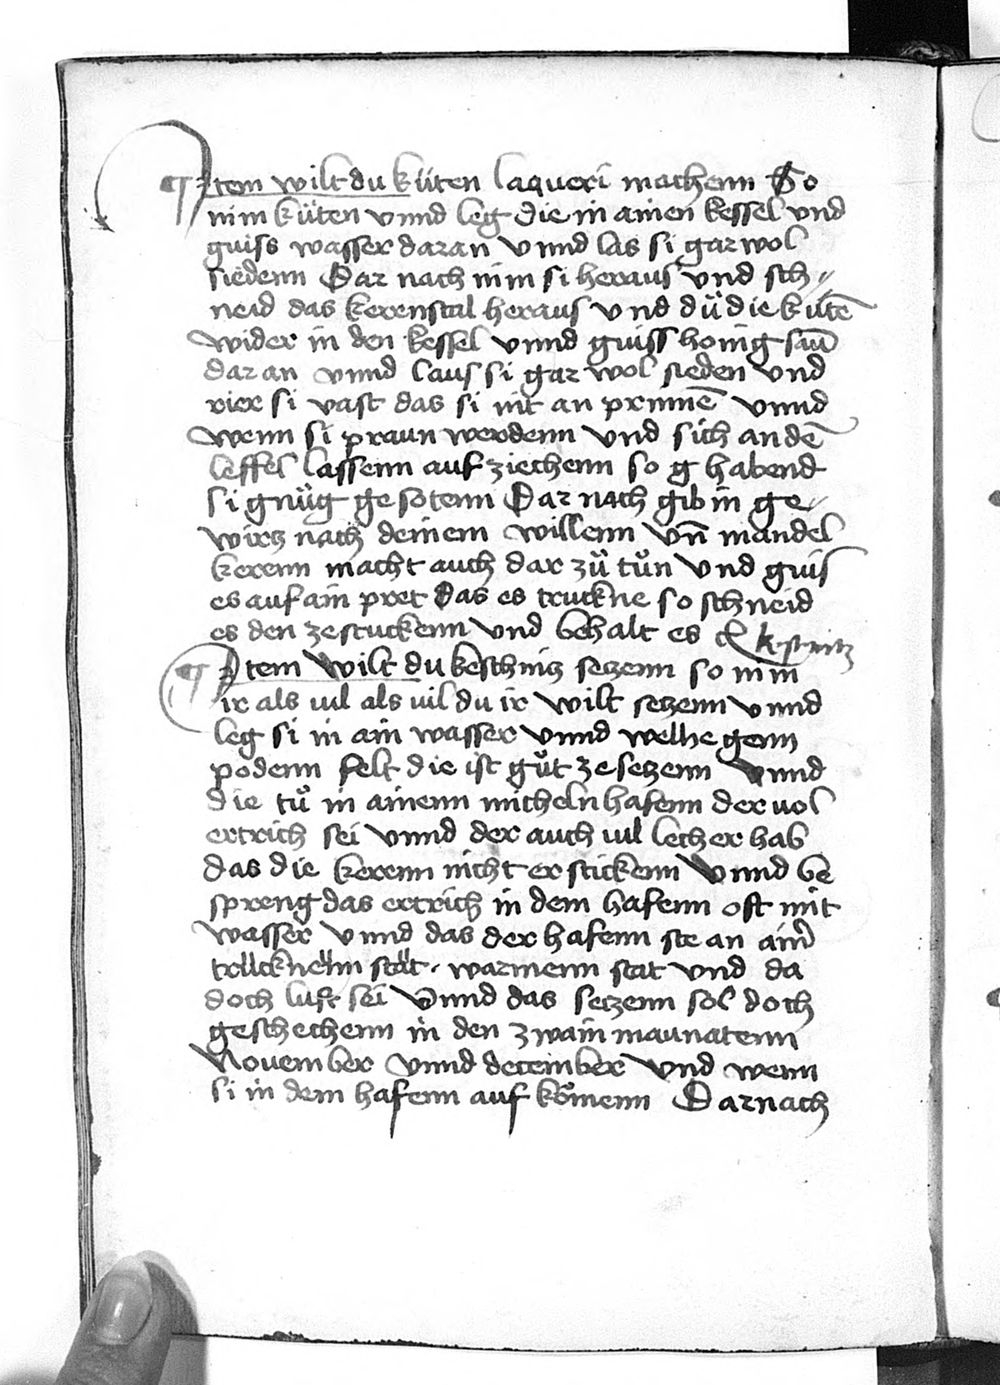 ¶ Item wilt du küten laqueri machenn So
nim küten vnnd leg die in ainen kessel vnd
guiss wasser daran vnnd las si gar wol
siedenn Dar nach nim si heraus vnd sch〃
neid das kerenstal heraus vnd dů die kutē
wider in den kessel vnnd guiss honig
daran vnnd laus si gar wol sieden vnd
rier si vast das si nit an prinnē vnnd
wenn si praun werdenn vnd sich an dē
leffel lassenn auf ziechenn so g habend
si gnüg gesotenn Dar nach gib in ge〃
wirtz nach deinem willenn vn̄ mandel
kerenn macht auch dar zů tůn vnd guis
es auf ain pret Das es truckne so schneid
es den ze stuckenn vnd behalt es
¶ Item wilt du keschnitz setzenn so nim
ir als uil als uil du ir wilt setzenn vnnd
leg si in ain wasser vnnd welhe genn
podenn felt die ist gůt ze setzenn vnnd
die tů in ainenn micheln hafenn der uol
ertrich sei vnnd der auch uil lecher hab
das die kerenn nicht er stickenn vnnd be
spreng das ertrich in dem hafenn oft mit
wasser vnnd das der hafenn ste an ainr̄
trücknenn stät. warmenn stat vnd da
doch luft sei vnnd das setzenn sol doch
geschechenn in den zwain maunatenn
November vnnd december vnd wenn
si in dem hafenn auf kömenn Darnach